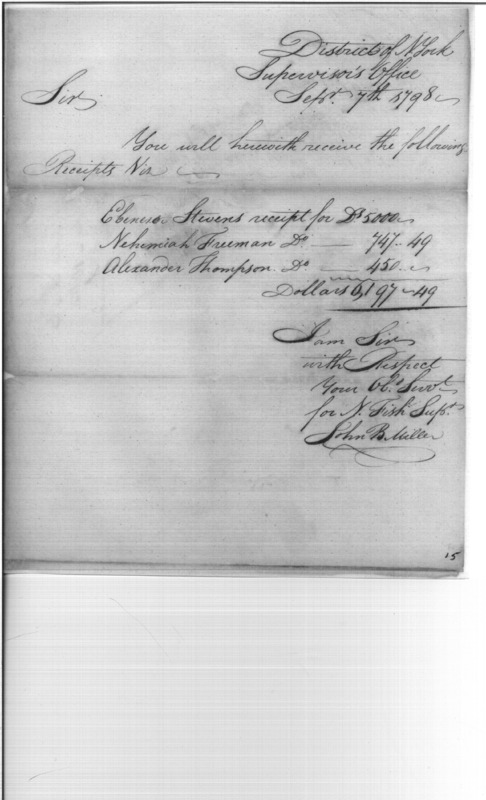 District of N York
Supervisor's Office
Sept. 7th 1798
Sir
You will herewith receive the following
Receipts Viz
Ebenezer Stevens receipt for Ds 5000
Nehemiah Freeman Do — 747.. 49
Alexander Thompson Do — 450
Dollars 6,197 — 49
I am Sir
with Respect
Your Obt. Servt.
for N. Fish Supr.
John B. Miller
15